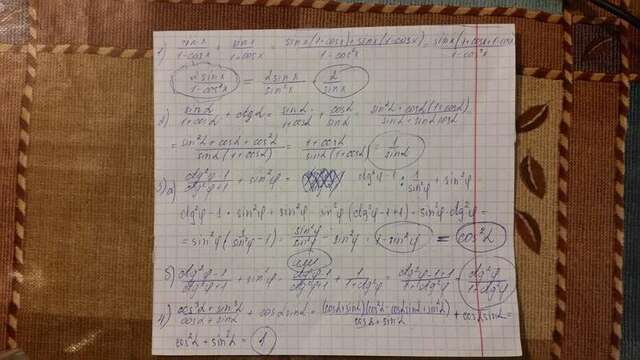 1) sin x / 1-cos x + sin x / 1+cos x = sin x (1+cos x) + sin x (1-cos x) / 1-cos²x = sin x (1+cos x+1-cos x) / 1-cos²x
2 sin x / 1-cos²x = 2 sin x / sin²x = 2 / sin x
2) sin α / 1+cos α + ctg α = sin α / 1+cos α + cos α / sin α = sin²α + cos α (1+cos α) / sin α + sin α cos α
= sin²α + cos α + cos²α / sin α (1+cos α) = 1+cos α / sin α (1+cos α) = 1 / sin α
3) а) ctg²φ-1 / ctg²φ+1 + sin²φ = ctg²φ-1 : 1 / sin²φ + sin²φ
ctg²φ-1 · sin²φ + sin²φ = sin²φ (ctg²φ-1+1) = sin²φ · ctg²φ =
= sin²φ (1 / sin²φ - 1) = sin²φ / sin²φ - sin²φ = 1-sin²φ = cos²α
или
б) ctg²φ-1 / ctg²φ+1 + sin²φ = ctg²φ-1 / ctg²φ+1 + 1 / 1+ctg²φ = ctg²φ-1+1 / 1+ctg²φ = ctg²φ / 1+ctg²φ
4) cos³α + sin³α / cos α + sin α + cos α sin α = (cos α + sin α)(cos²α - cos α sin α + sin²α) / cos α + sin α + cos α sin α =
cos²α + sin²α = 1